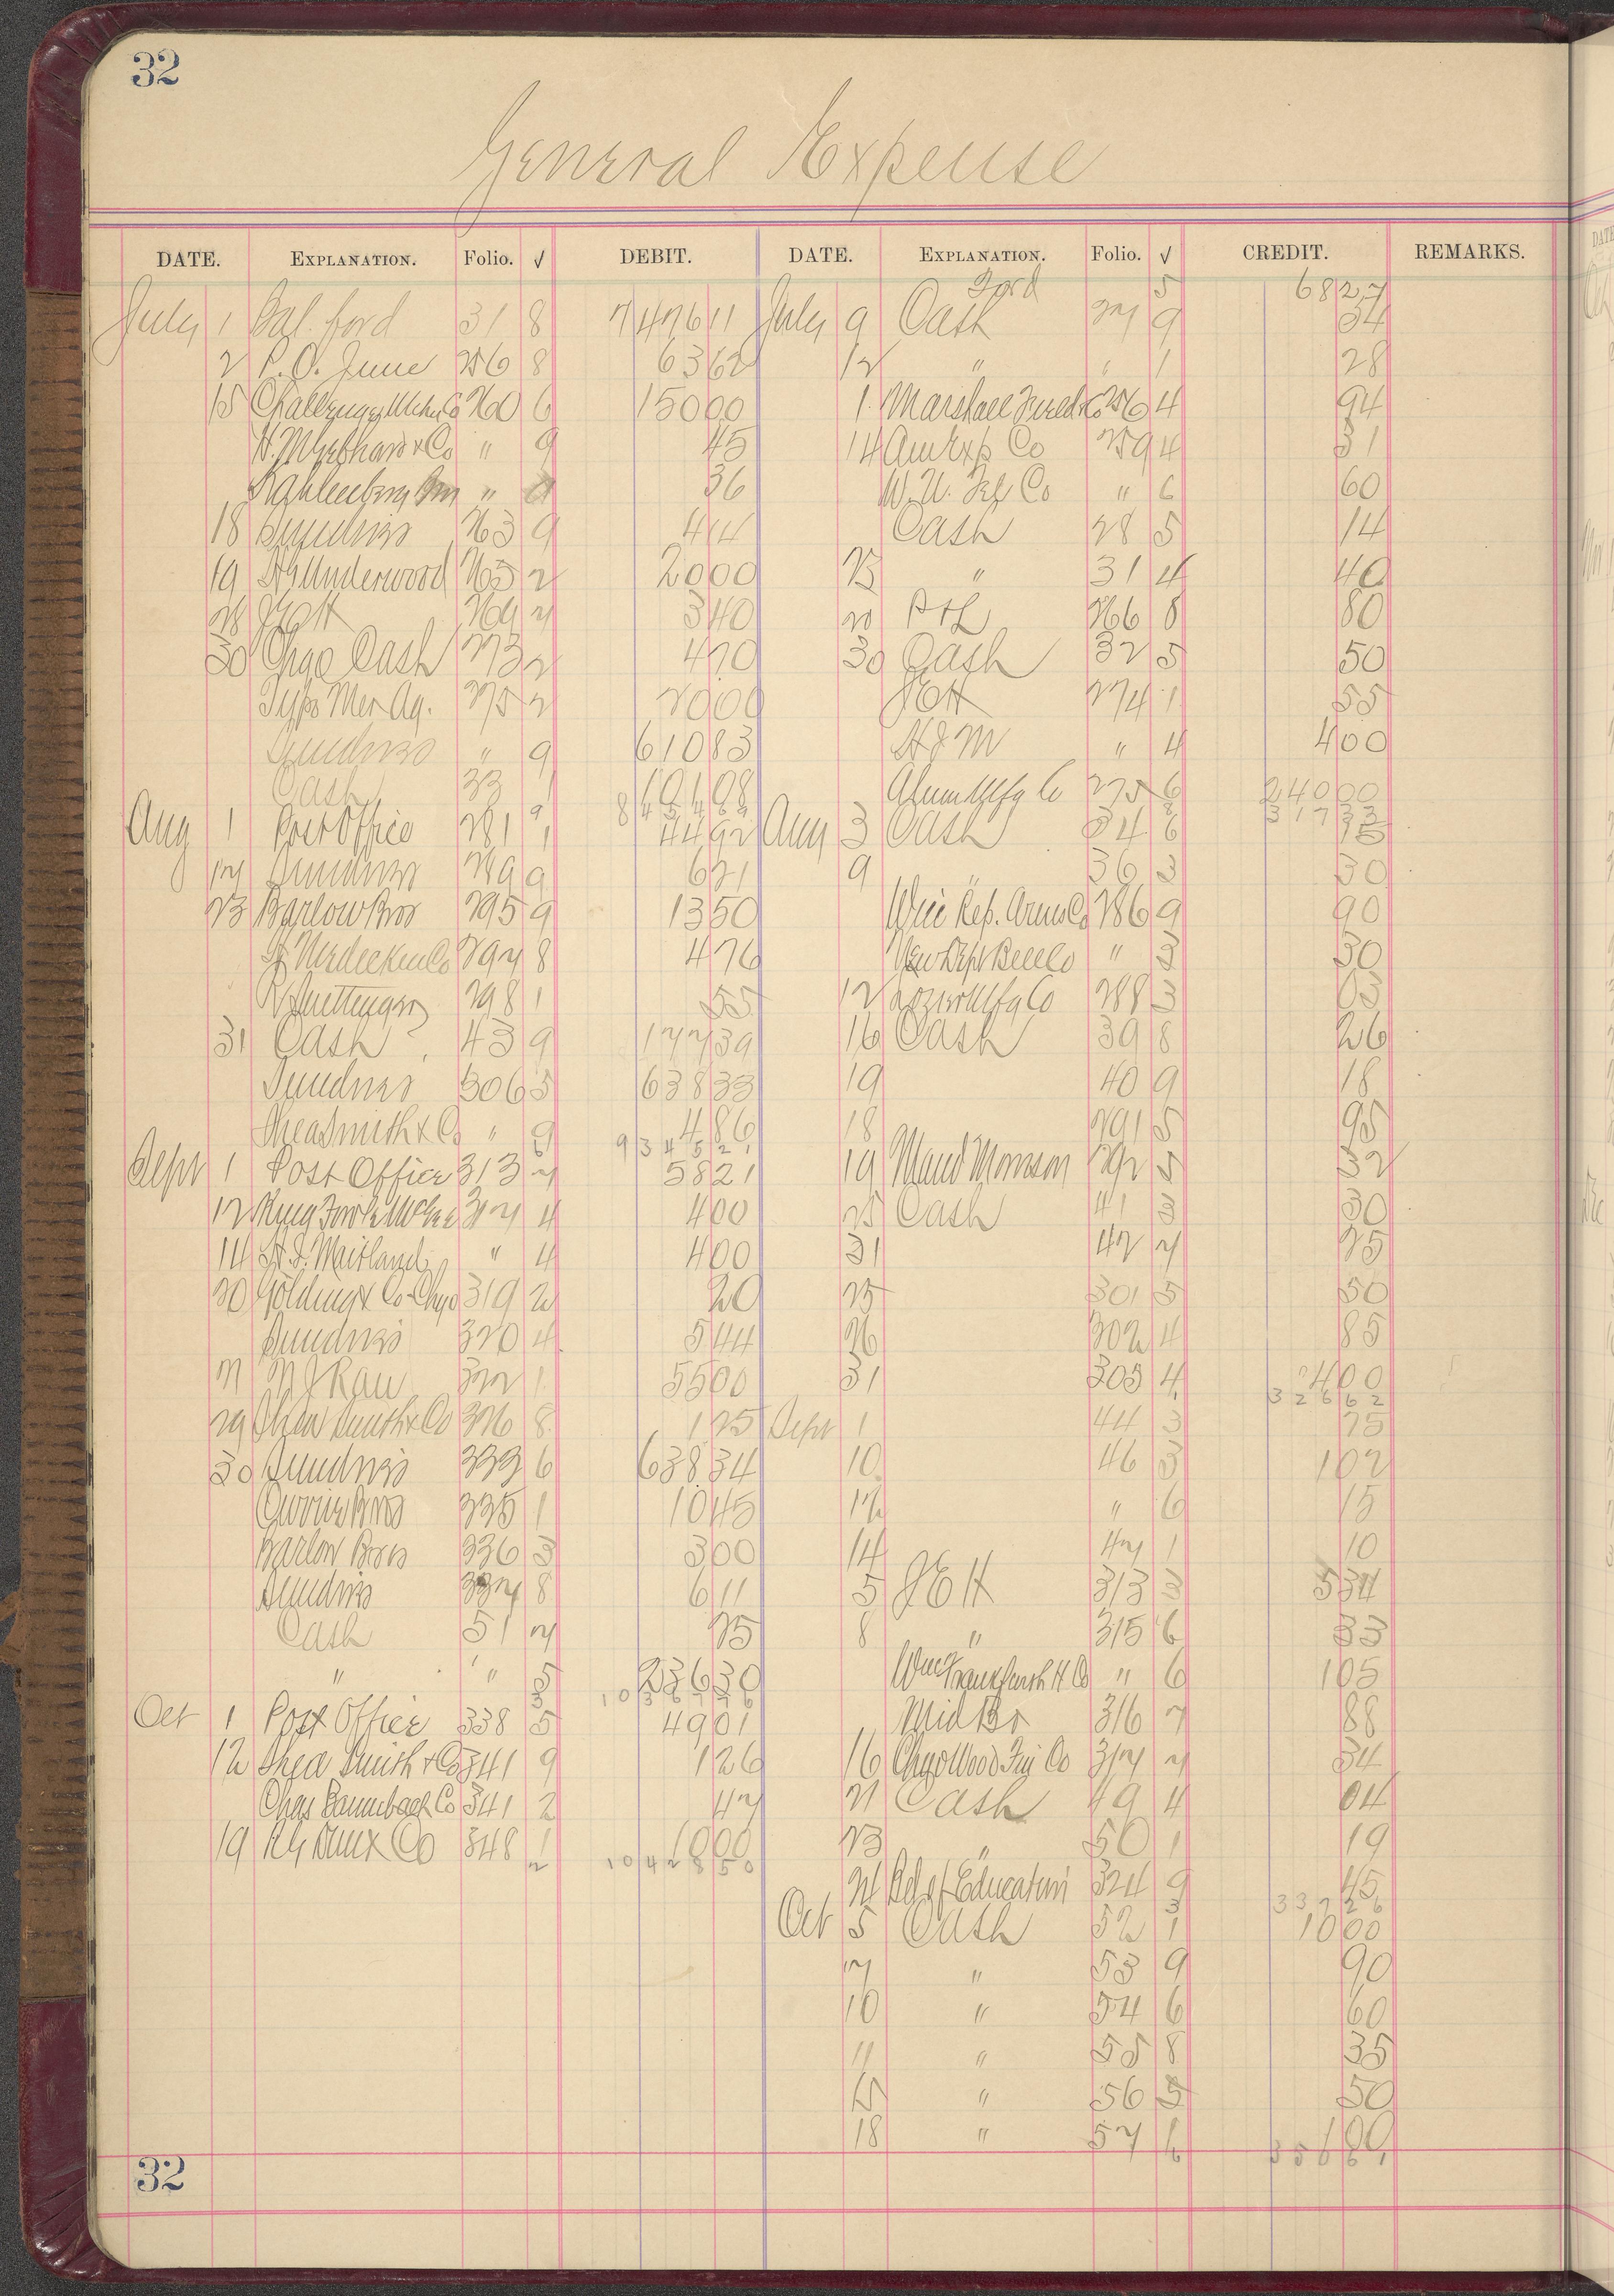 32
General Expense
DATE. EXPLANATION. Folio. √ DEBIT. DATE. EXPLANATION. Folio. √ CREDIT. REMARKS.
Ford 5 6827
July 1 Bal. ford 31 8 747611 July 9 Cash 27 9 34
2 P.O. June 256 8 6362 12 " " 1 28
15 260 6 15000 1 Marshall Field & Co 256 4 94
& Co " 9 45 14 Am Exp Co 259 4 31
" 36 W. U. Tel Co " 6 60
18 Sundries 263 9 414 Cash 28 5 14
19 Underwood 265 2 2000 23 " 31 4 40
28 269 7 340 20 P & L 266 8 80
30 Chgo Cash 273 2 470 30 Cash 32 5 50
Typo Mer Ag. 275 2 2000 JEH 274 1 55
Sundries " 9 61083 " 4 400
Cash 33 1 10108 Alum Mfg Co 275 6 24000
8 4 5 4 8 9 3 1 7 3 3
Aug 1 Post Office 281 1 4492 Aug 3 Cash 34 6 15
17 Sundries 289 9 621 9 " 36 3 30
23 Barlow Bros 295 9 1350 Rep. Arms Co 286 9 90
297 8 476 New Dept Bell Co " 3 30
298 1 55 12 Lozier Mfg Co 288 3 03
31 Cash 43 9 17739 16 Cash 39 8 26
Sundries 306 5 63833 19 40 9 18
Shea Smith & Co " 9 486 18 291 5 95
9 3 4 5 2 1
Sept 1 Post Office 313 7 5821 19 Maud Monson 292 5 32
12 King Fowle McGee 317 4 400 25 Cash 41 3 30
14 Maitland " 4 400 31 42 7 25
20 Golding & Co-Chgo 319 2 20 25 301 5 50
Sundries 320 4 544 26 302 4 85
21 N J Rau 322 1 5500 31 305 4 400
3 2 6 6 2
29 Shea Smith & Co 326 8 125 Sept 1 44 3 25
30 Sundries 333 6 63834 10 46 3 102
Currie Bros 335 1 1045 12 " 6 15
Barlow Bros 336 3 300 14 47 1 10
Sundries 337 8 611 5 JEH 313 3 534
Cash 51 7 25 8 " 315 6 33
" " 5 23630 Co " 6 105
Oct 1 Post Office 338 5 4901 Mid Br 316 7 88
12 Shea Smith & Co 341 9 126 16 Chgo Wood Co 317 7 34
Chas Co 341 2 47 21 Cash 49 4 04
19 RG Dun & Co 348 1 1000 23 " 50 1 19
2 1 0 4 2 8 5 0 24 Bd of Education 324 9 45
3 3 3 7 2 6
Oct 5 Cash 52 1 1000
7 " 53 9 90
10 " 54 6 60
11 " 55 8 35
15 " 56 5 50
18 " 57 1 100
6 3 5 0 6 1
32